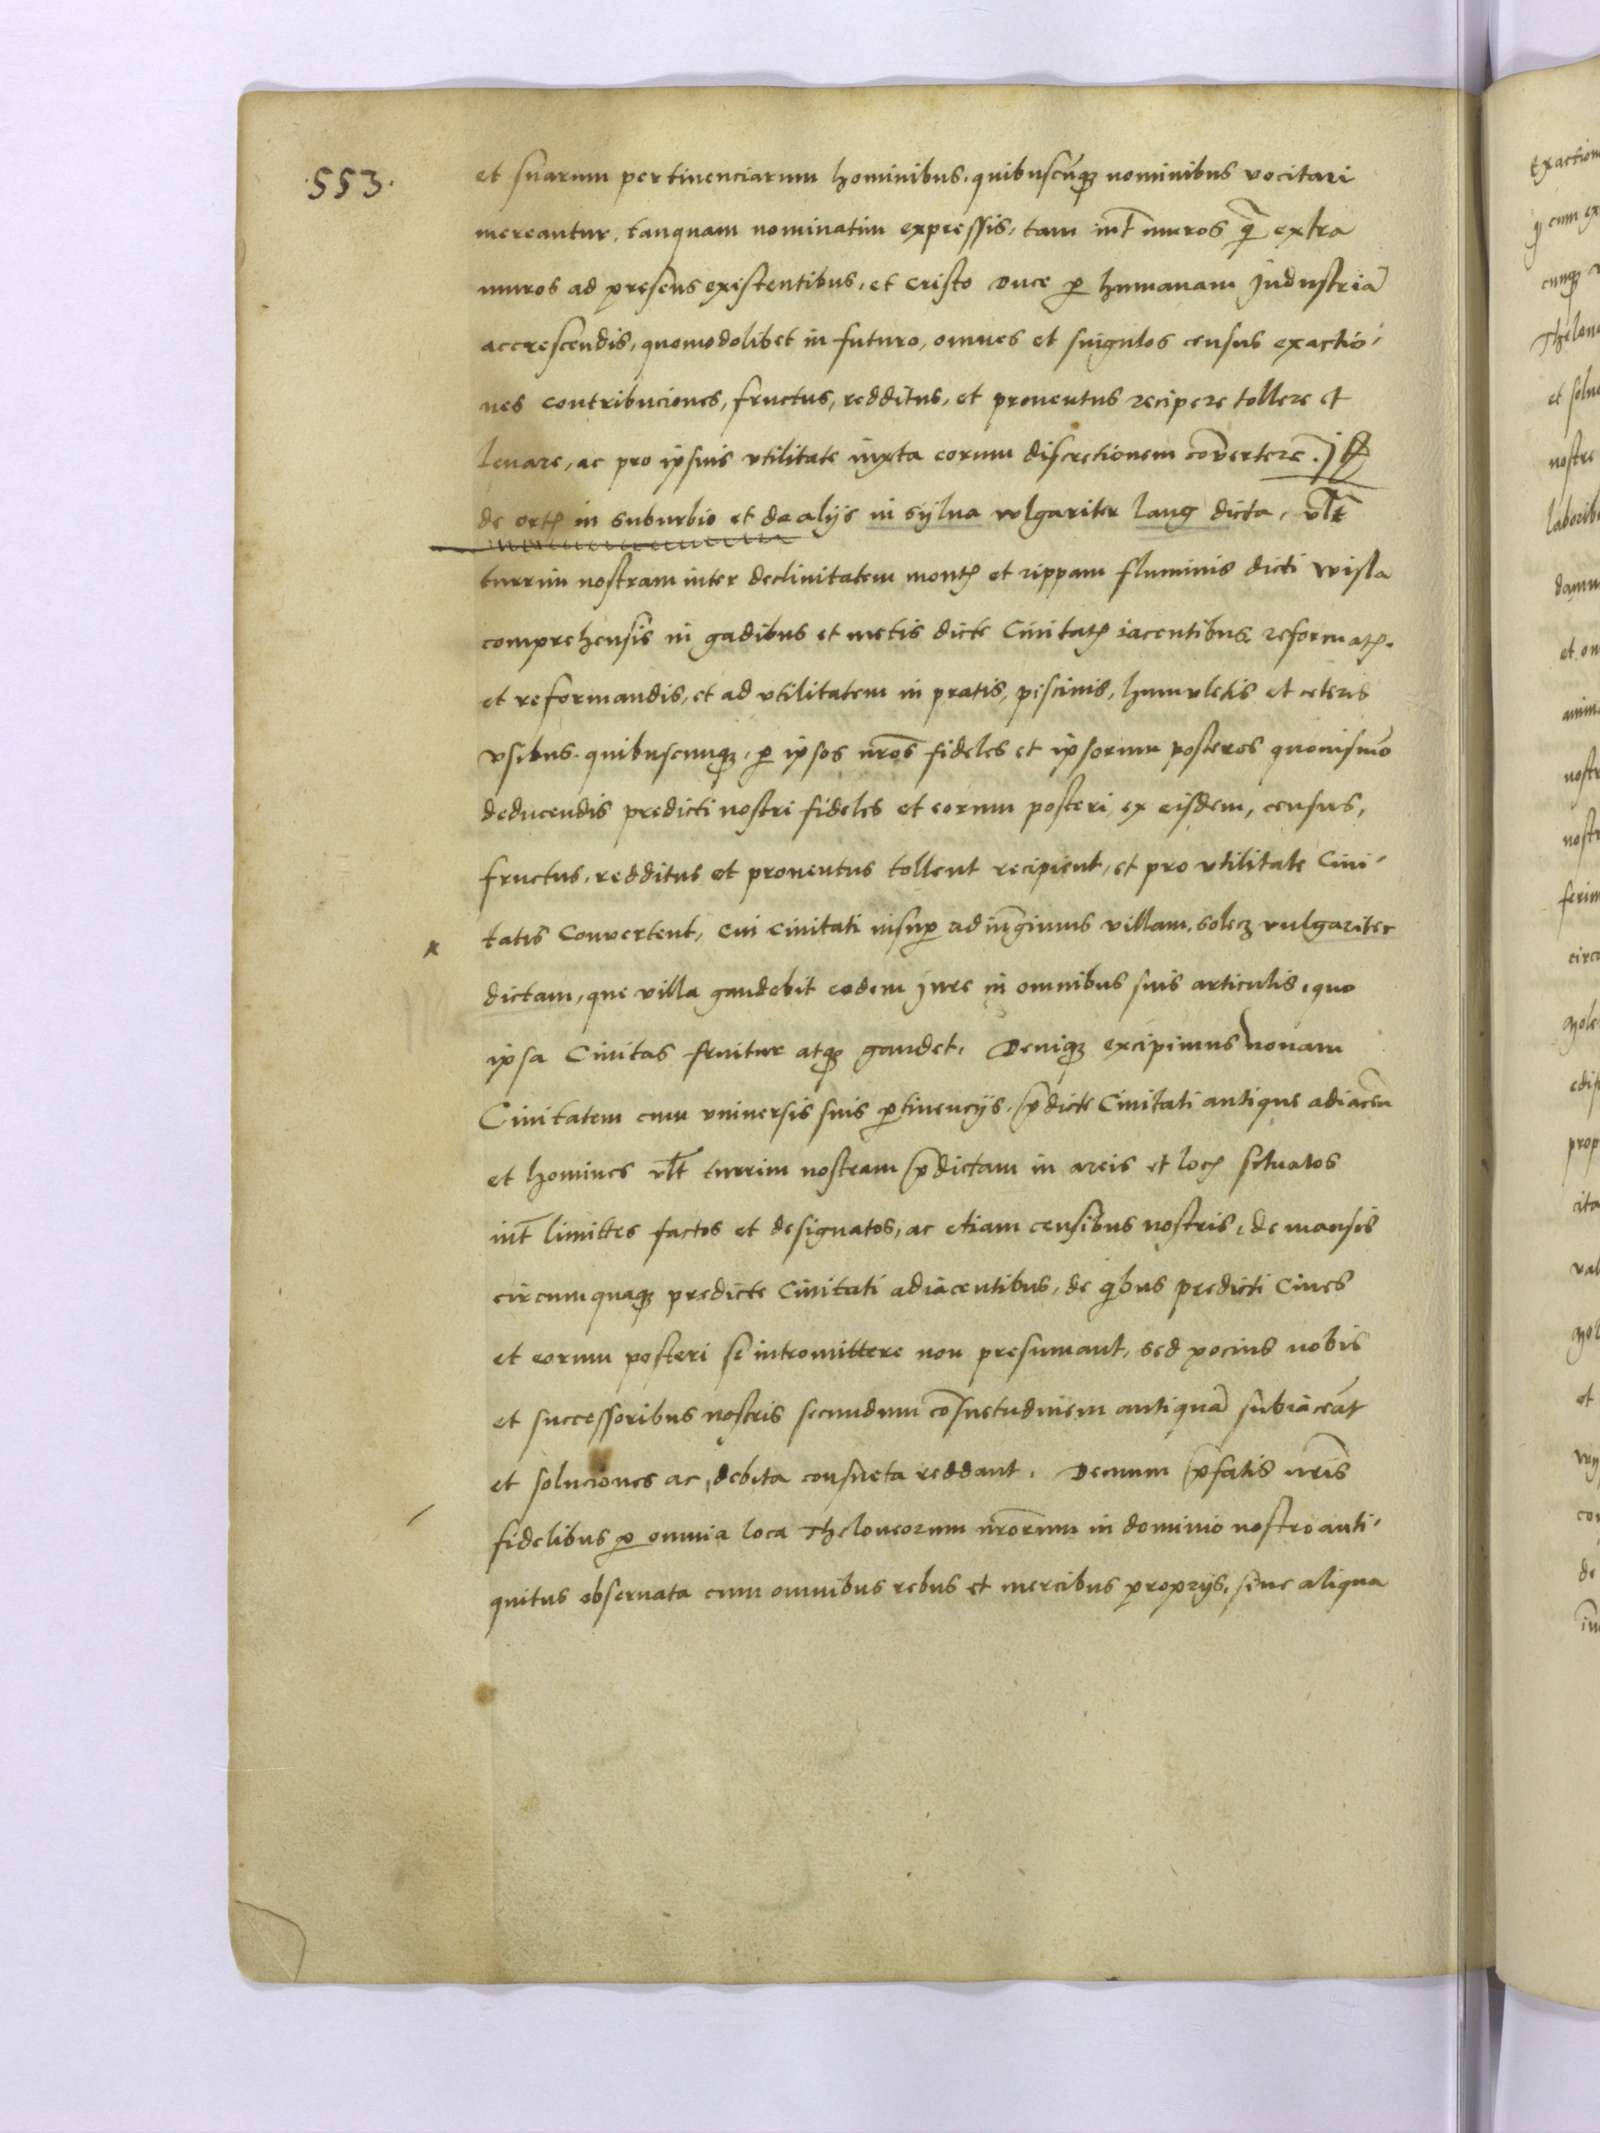 .553.
et suarum pertinenciarum hominibus, quibuscūqꝫ nominibus vocitari
mereantur, tanquam nominatim expressis, tam int̄ muros q̄ extra
muros ad presens existentibus, et cristo duce ꝑ humanam jndustriā
accrescendis, quomodolibet in futuro, omnes et singulos census exactio-
nes contribuciones, fructus, redditus, et prouentus recipere tollere et
leuare, ac pro ipsius vtilitate iuxta eorum discretionem cōvertere.
de ortꝭ in suburbio et de alijs in sylua vulgariter lang dicta, vlt̄
turrim nostram inter decliuitatem montꝭ et rippam fluminis dicti wisla
comprehensis in gadibus et metis dicte Ciuitatꝭ iacentibus, reformatꝭ.
et reformandis, et ad vtilitatem in pratis, piscinis, humuletis et ceteris
vsibus quibuscunqꝫ, ꝑ ipsos nr̄os fideles et ipsorum posteros quouismō
deducendis predicti nostri fideles et eorum posteri, ex eisdem, census,
fructus, redditus et prouentus tollent recipient, et pro vtilitate Ciui-
tatis Convertent, Cui ciuitati insuꝑ adiūgimus villam, solecz vulgariter
dictam, que villa gaudebit eodem jure in omnibus suis articulis, quo
ipsa Ciuitas fruitur atqꝫ gaudet, Deniqꝫ excipimus nouam
Ciuitatem cum vniuersis suis ꝑtinencijs, p̄dicte Ciuitati antique adiacēn
et homines vlt̄ turrim nostram p̄dictam in areis et locꝭ situatos
int̄ limittes factos et designatos, ac etiam censibus nostris, de mansis
circumquaqꝫ predicte Ciuitati adiacentibus, de qibus predicti Ciues
et eorum posteri se intromittere non presumant, sed pocius nobis
et successoribus nostris secundum cōsuetudinem antiquā subiaceāt
et soluciones ac debita consueta reddant. Demum p̄fatis nr̄is
fidelibus ꝑ omnia loca Theloneorum nr̄orum in dominio nostro anti-
quitus obseruata cum omnibus rebus et mercibus proprijs, sine aliqua